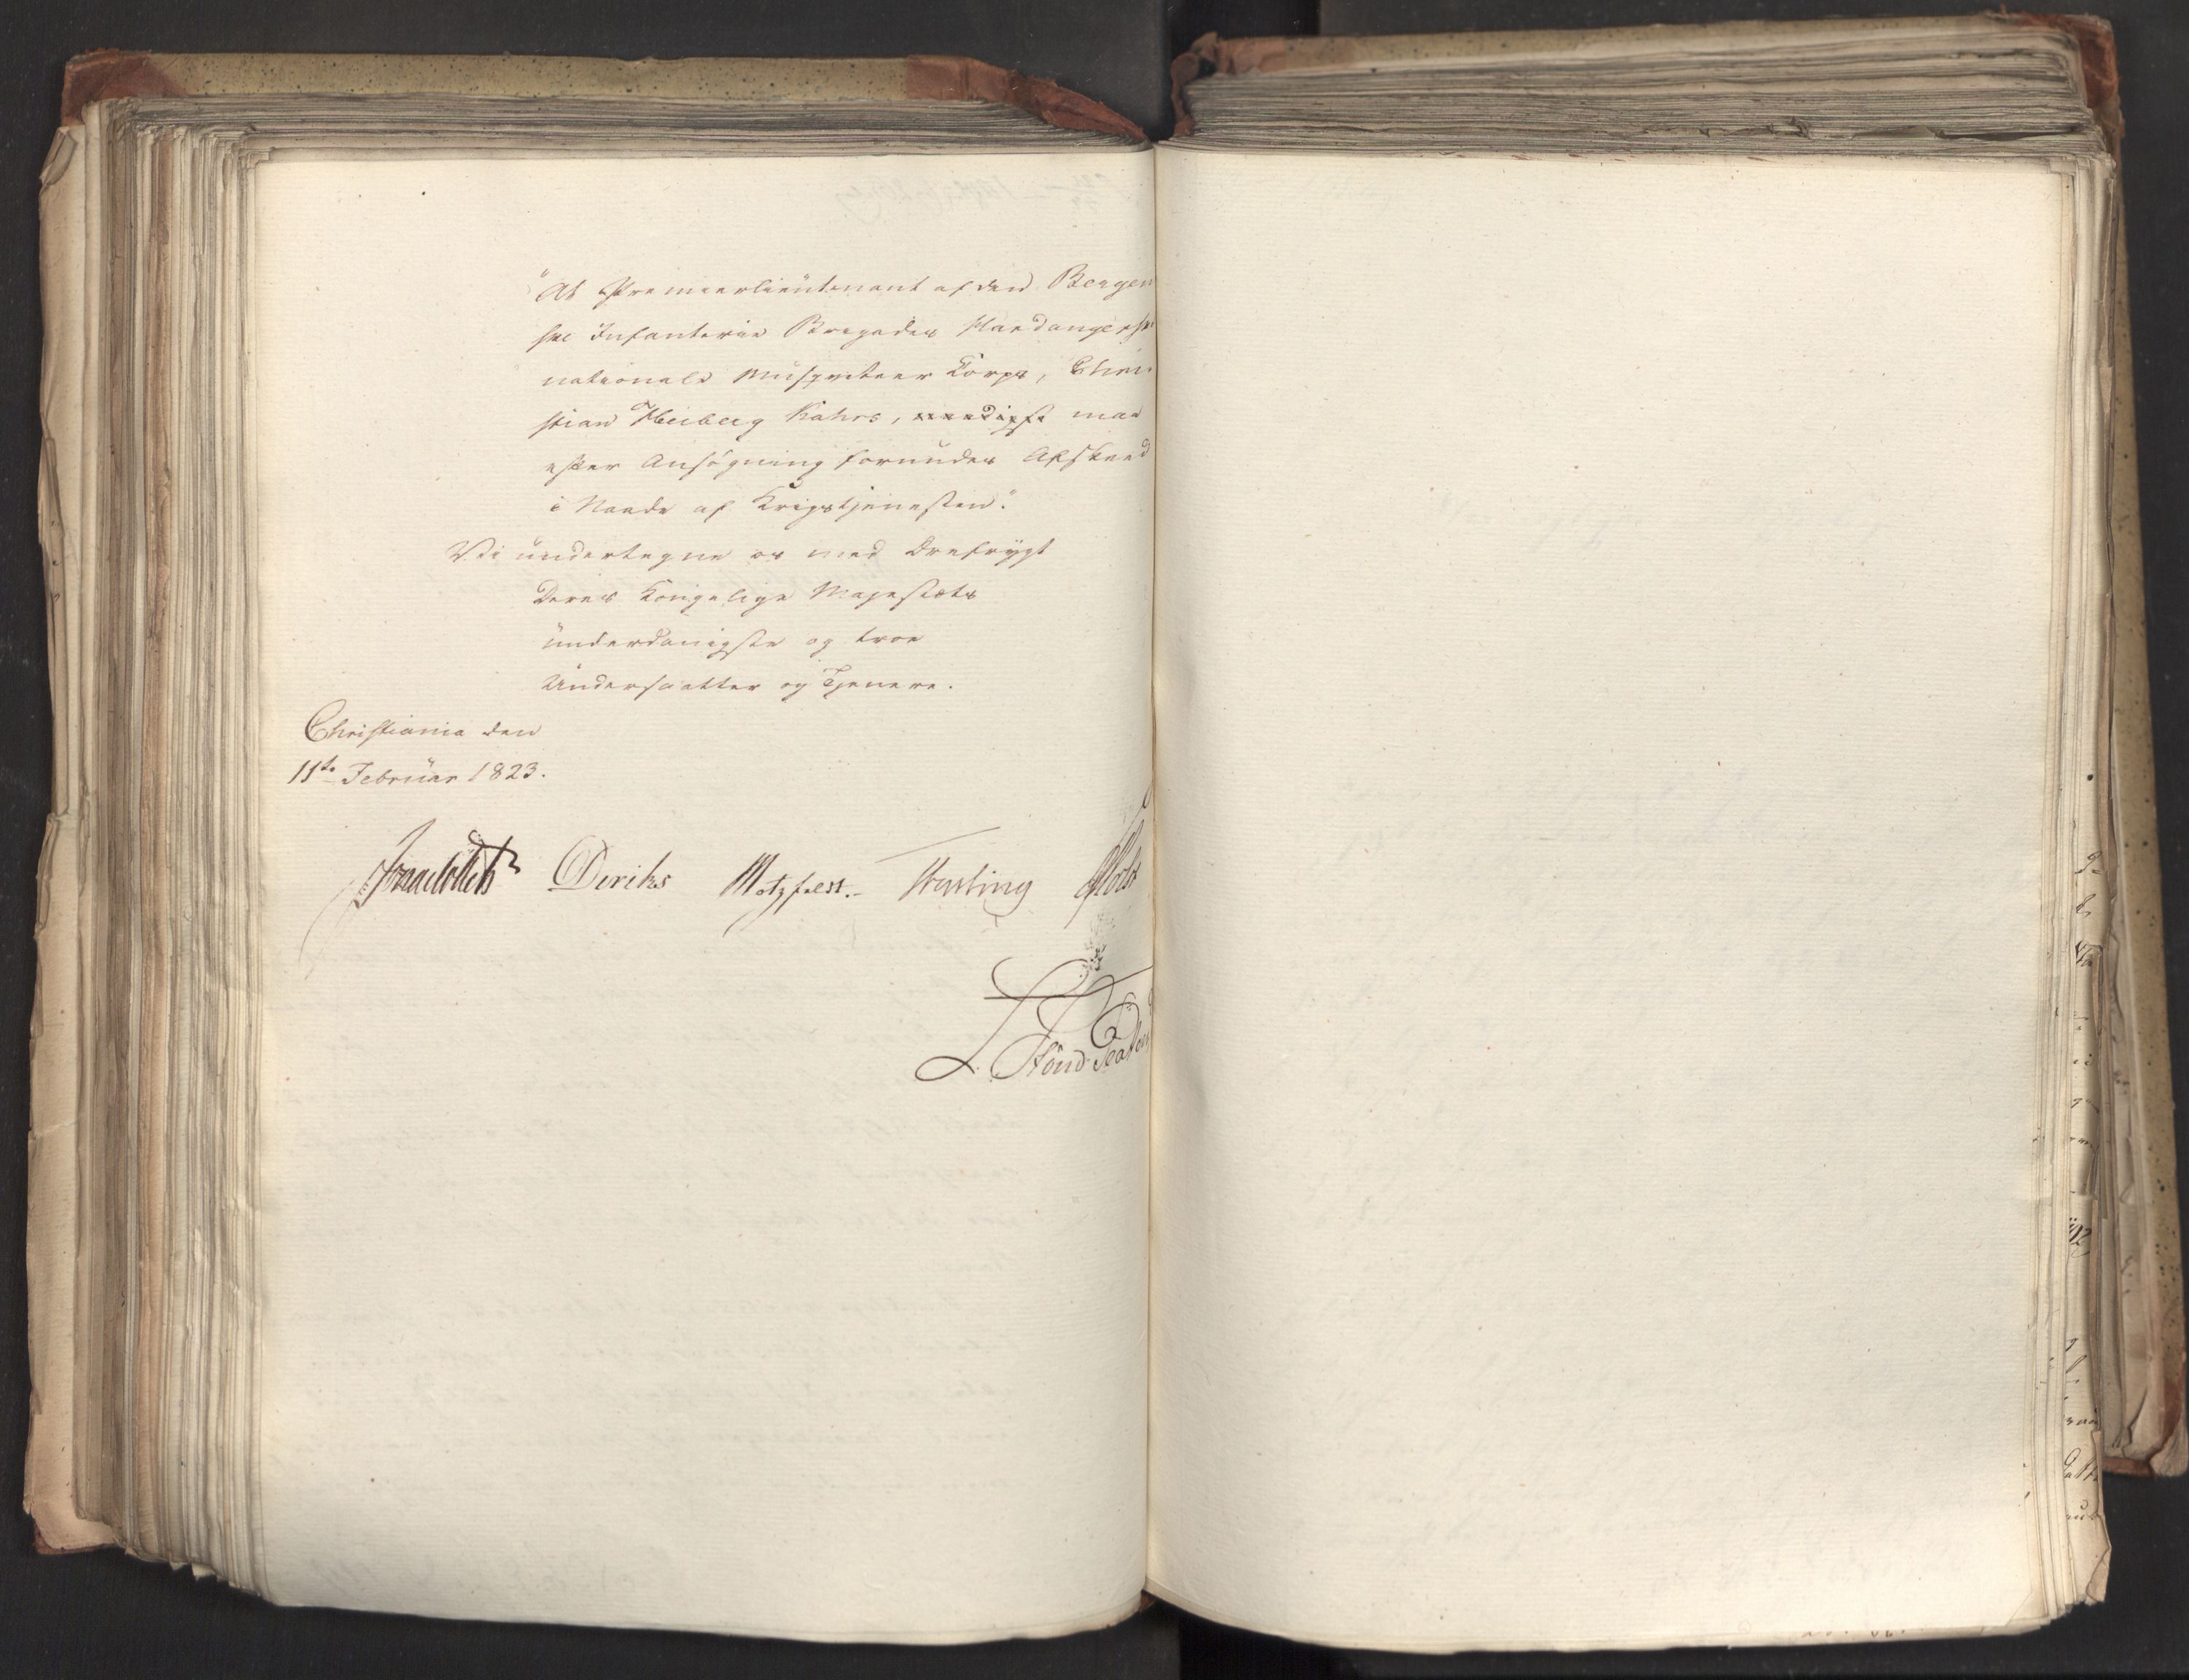 "At Premierlieutenant af den Bergen
ske Infanterie Brigades Hardangerske
nationale Musqueteer Corps, Chri-
stian Heiberg Kahrs, naadigst maa
efter Ansøgning forundes Afskeed
i Naade af Krigstjenesten."
Vi undertegne os med Ærefrygt
Deres Kongelige Majestæts
underdanigste og troe
Undersaatter og Tjenere.
Christiania den
11te Februar 1823.
Jonas Collett Diriks Motzfeldt. Fasting Holst